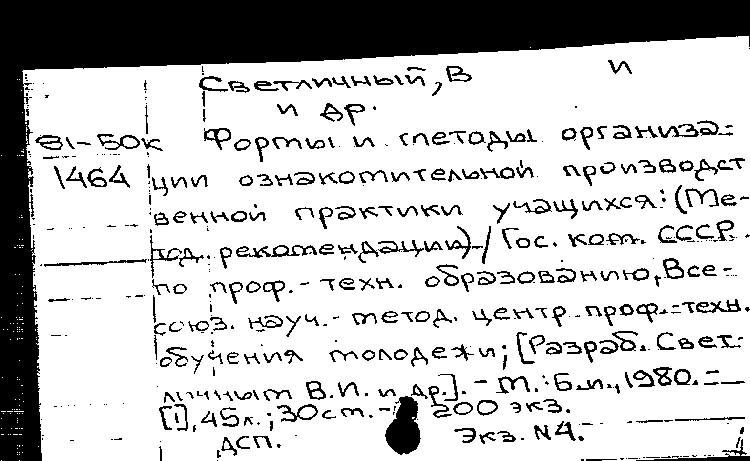 Светличный, В и
и др.
81-БОК Формы и методы организа-
1464 ции ознакомительной производст
венной практики учащихся: (Ме-
тод. рекомендации) / Гос. ком. СССР.
по проф.-техн. образованию, Все-
союз. науч.-метод. центр проф.-техн.
обучения молодежи; [Разраб. Свет-
личным В.И. и др.]. - М.: Б.и., 1980. -
[1], 45 л.; 30 см. - 200 экз.
ДСП. Экз. N4.